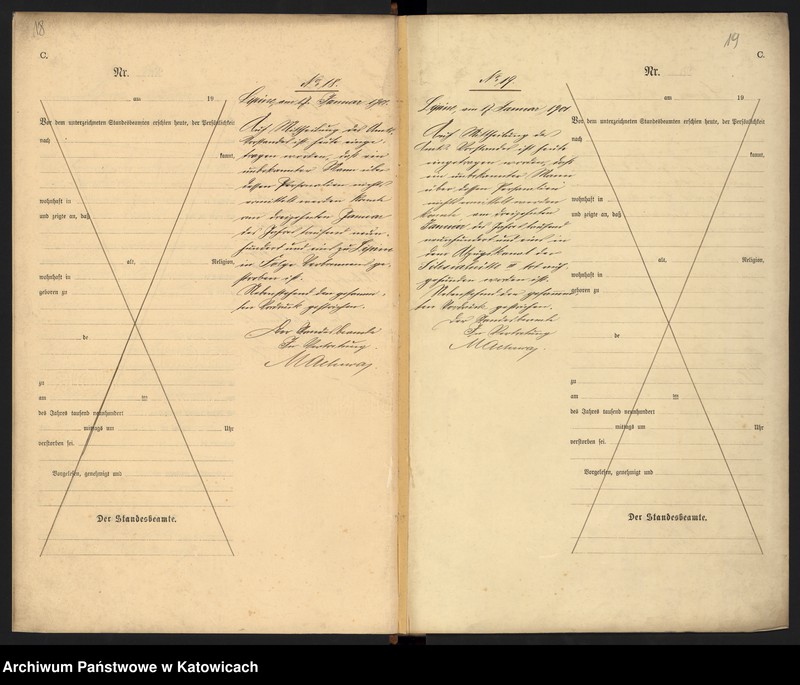 18
C.
Nr.
am 19
Vor dem unterzeichneten Standesbeamten erschien heute, der Persönlichkeit
nach
kannt,
wohnhaft in
und zeigte an, daß
alt, Religion,
wohnhaft in
geboren zu
de
zu
am ten
des Jahres tausend neunhundert
mittags um Uhr
verstorben sei.
Vorgelesen, genehmigt und
Der Standesbeamte.
No. 18.
Lipine, am 17. Januar 1901.
Auf Mittheilung des Amts-
Vorstandes ist heute einge-
tragen worden, daß ein
unbekannter Mann über
dessen Personalien nichts
ermittelt werden konnte
am dreizehnten Januar
des Jahres tausend neun-
hundert und eins zu Lipine
in Folge ge-
storben ist.
Nebenstehend den gesamm-
ten Vordruck gestrichen.
Der Standesbeamte
In Vertretung.
No. 19
Lipine, am 17. Januar 1901
Auf Mittheilung des
Amts-Vorstandes ist heute
eingetragen worden, daß
ein unbekannter Mann
über dessen Personalien
nichts ermittelt werden
konnte am dreizehnten
Januar des Jahres tausend
neunhundert und eins in
dem der
tot auf-
gefunden worden ist.
Nebenstehend den gesamm-
ten Vordruck gestrichen.
Der Standesbeamte
In Vertretung
19
C.
Nr.
am 19
Vor dem unterzeichneten Standesbeamten erschien heute, der Persönlichkeit
nach
kannt,
wohnhaft in
und zeigte an, daß
alt, Religion,
wohnhaft in
geboren zu
de
zu
am ten
des Jahres tausend neunhundert
mittags um Uhr
verstorben sei.
Vorgelesen, genehmigt und
Der Standesbeamte.
Archiwum Państwowe w Katowicach